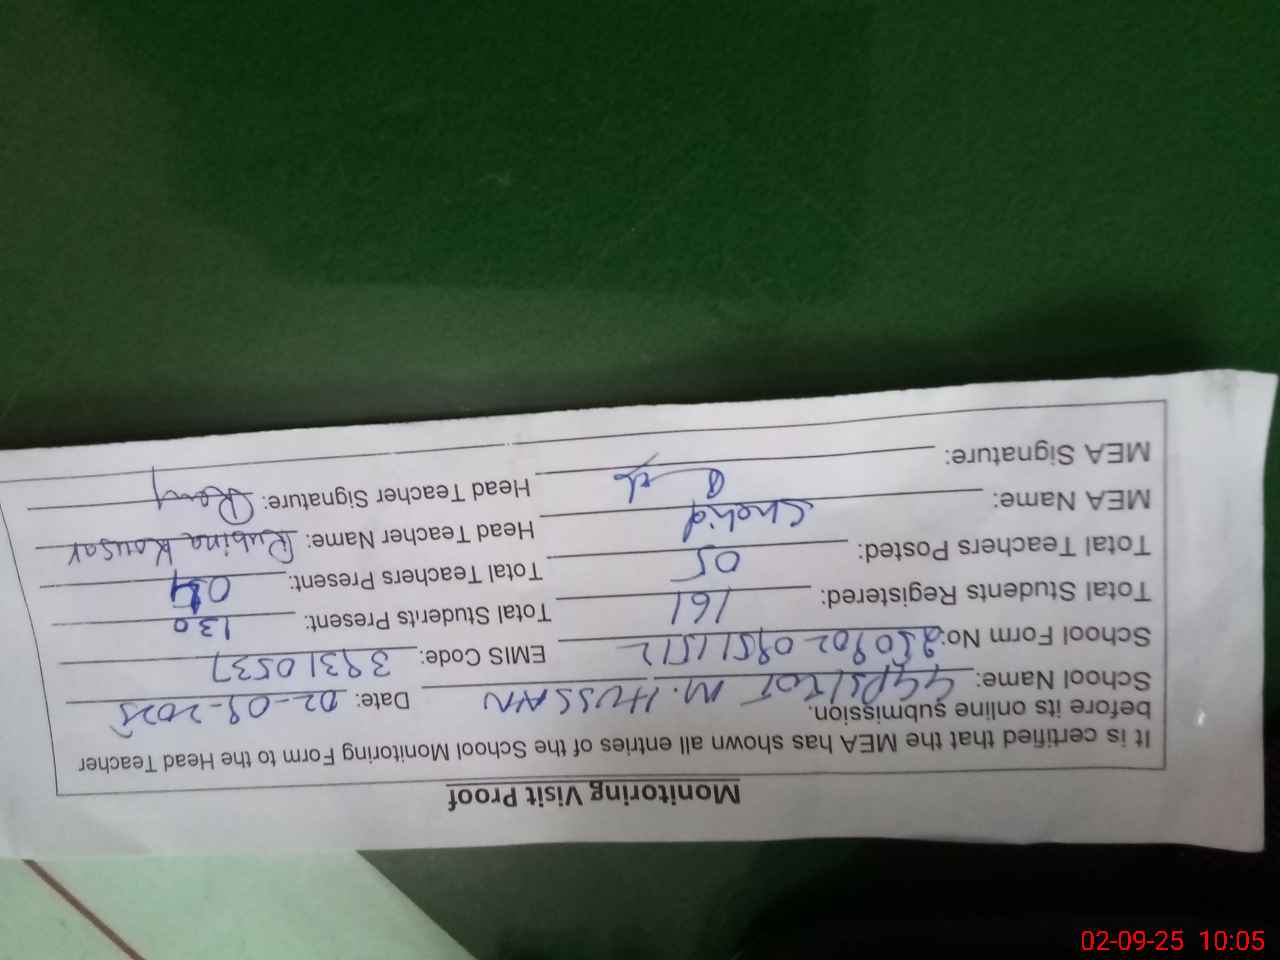 Monitoring Visit Proof
It is certified that the MEA has shown all entries of the School Monitoring Form to the Head Teacher
before its online submission.
School Name: GGPS KOT M. HUSSAN Date: 02-09-2025
School Form No: 250902 09511512 EMIS Code: 39310537
Total Students Registered: 161 Total Students Present: 130
Total Teachers Posted: 05 Total Teachers Present: 04
MEA Name: Shahid Head Teacher Name: Rubina Kousar
MEA Signature: Head Teacher Signature:
02-09-25 10:05